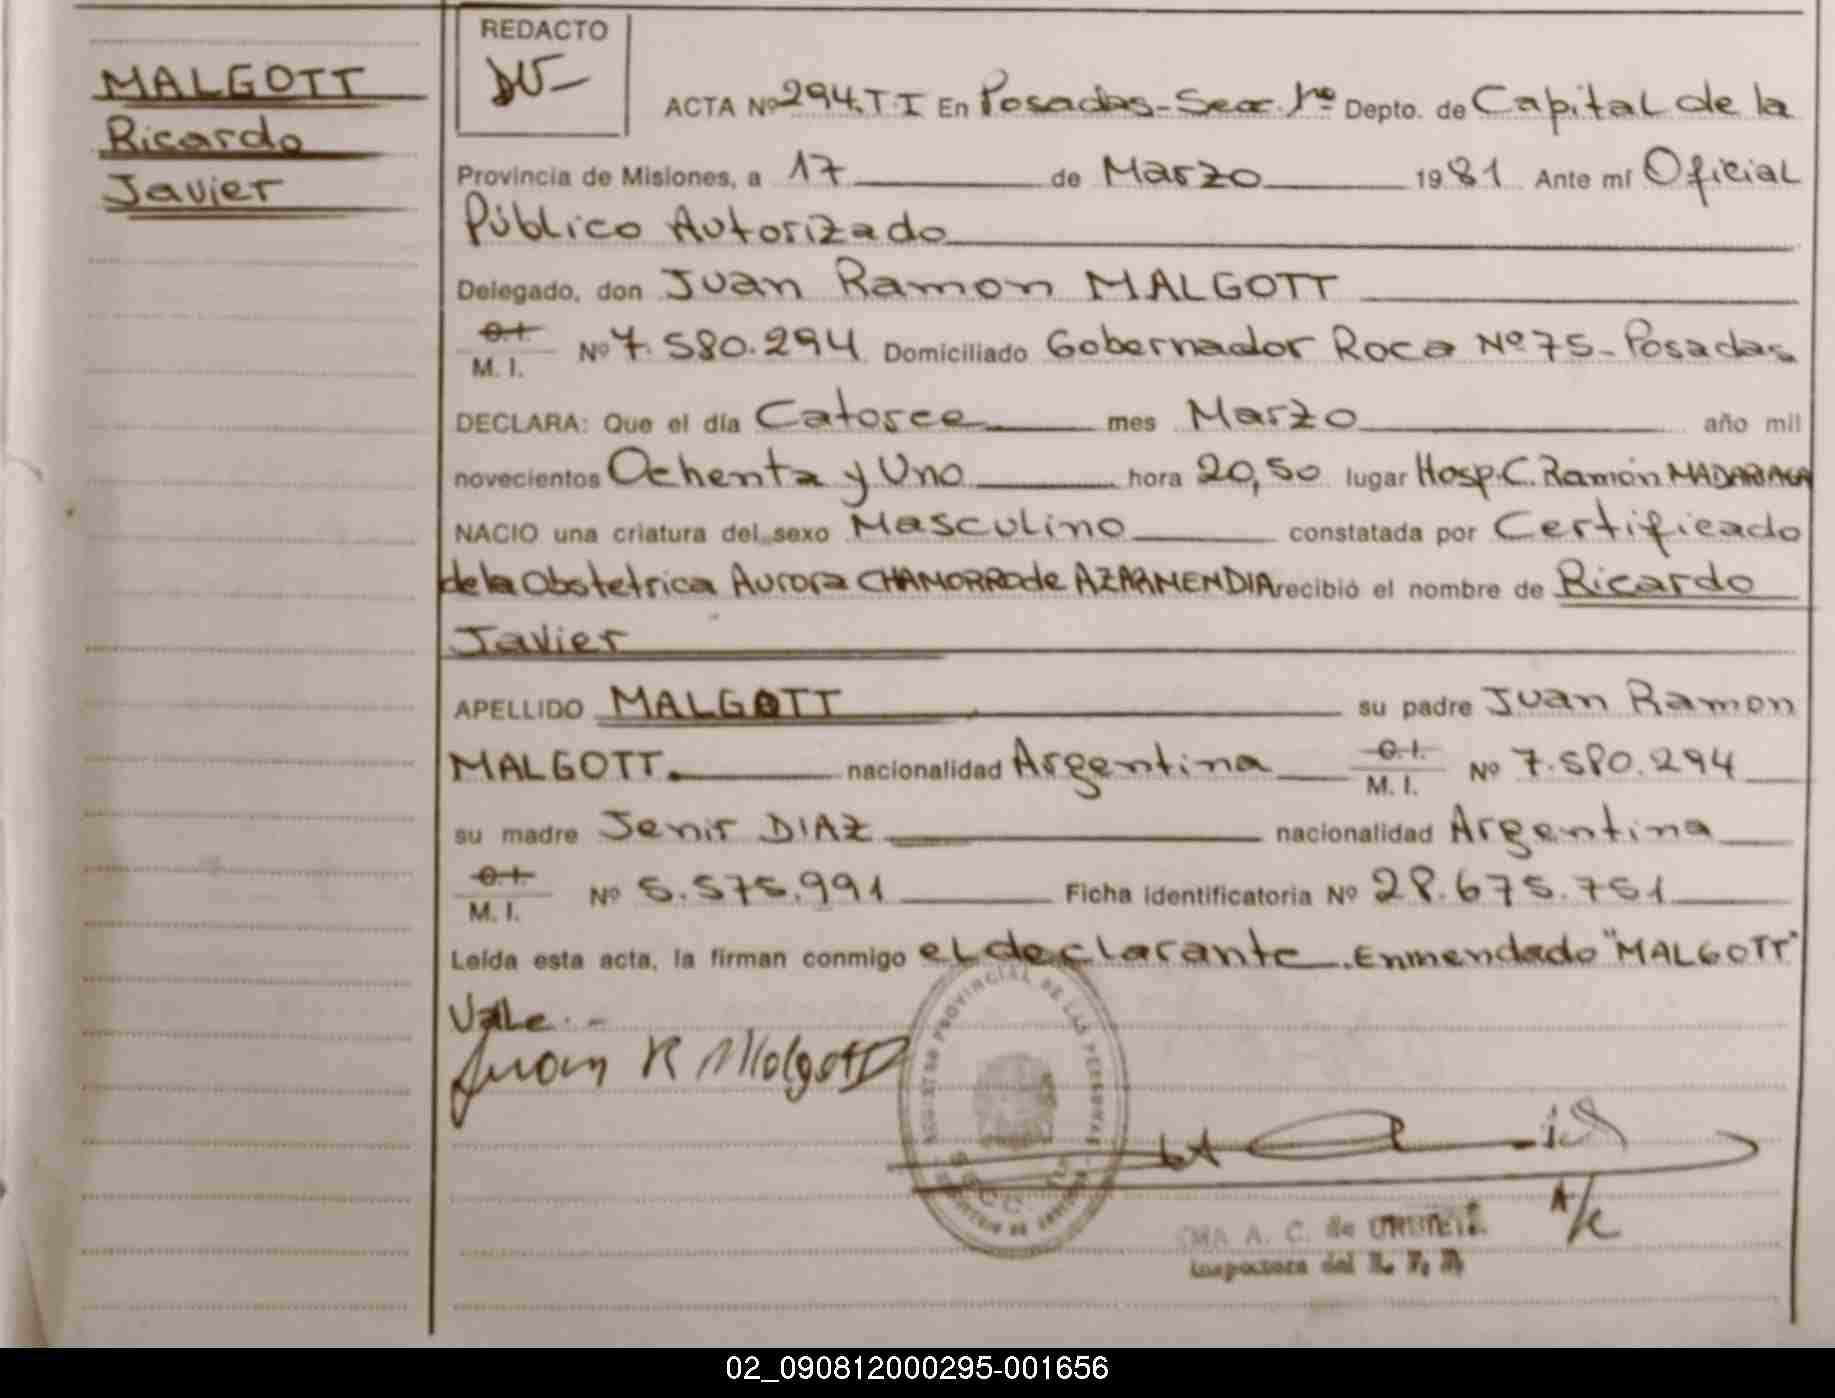 MALGOTT
Ricardo
Javier
REDACTO
ACTA Nº 294. T. I En Posadas - Secc. 1ra Depto. de Capital de la
Provincia de Misiones, a 17 de Marzo 1981 Ante mí Oficial
Público Autorizado
Delegado, don Juan Ramon MALGOTT
C.I.
M. I. Nº 7.580.294 Domiciliado Gobernador Roca Nº 75 - Posadas
DECLARA: Que el día Catorce mes Marzo año mil
novecientos Ochenta y Uno hora 20,50 lugar Hosp. C. Ramón MADARIAGA
NACIO una criatura del sexo Masculino constatada por Certificado
de la Obstetrica Aurora CHAMORRO de AZARMENDIA recibió el nombre de Ricardo
Javier
APELLIDO MALGOTT su padre Juan Ramon
MALGOTT. nacionalidad Argentina C.I. M. I. Nº 7.580.294
su madre Jenir DIAZ nacionalidad Argentina
C.I.
M. I. Nº 5.575.991 Ficha identificatoria Nº 28.675.751
Leída esta acta, la firman conmigo el declarante. Enmendado "MALGOTT"
Vale. -
Juan R Malgott
REGISTRO PROVINCIAL DE LAS PERSONAS
A. C. de
Inspectora del R. P.
02_090812000295-001656